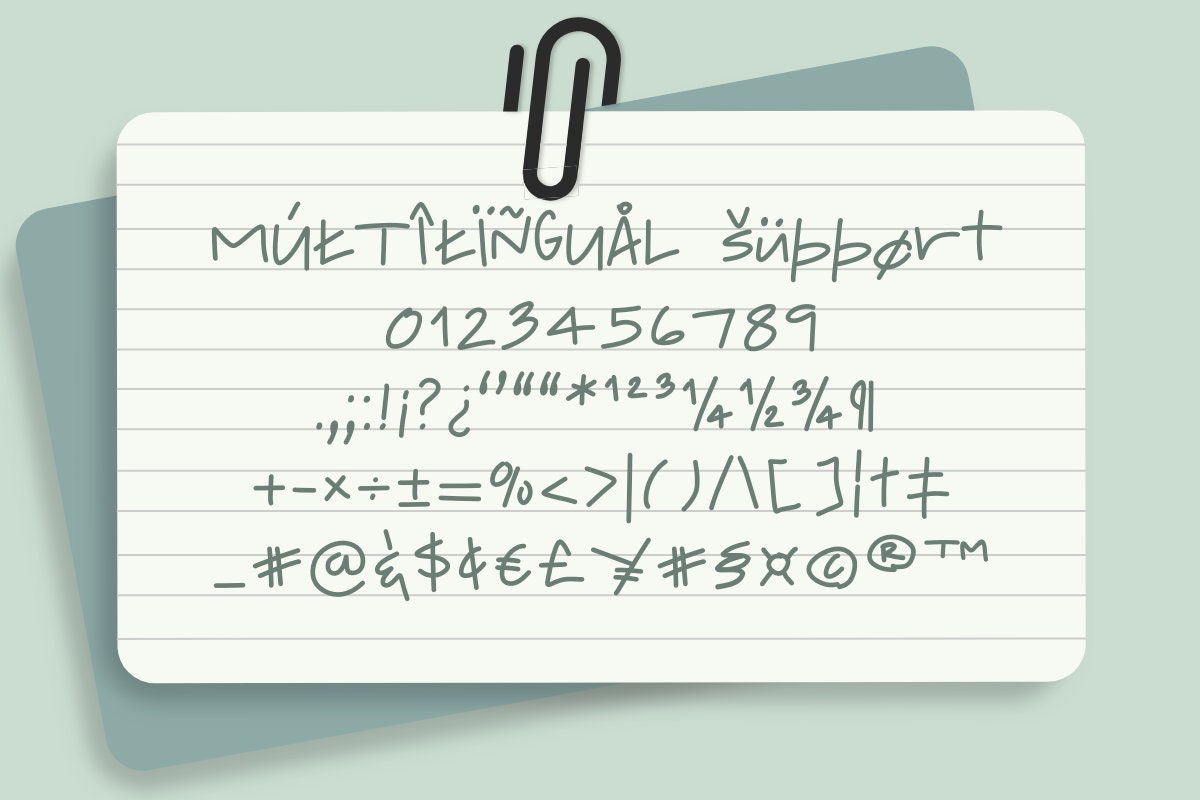 MÚŁTÎŁÏÑGUÅL šüþþørt
0123456789
.,;:!¡?¿‘’“““*¹²³¼½¾¶
+-×÷±=%<>|()/\[]¦†‡
_#@&$¢€£¥#§¤©®™